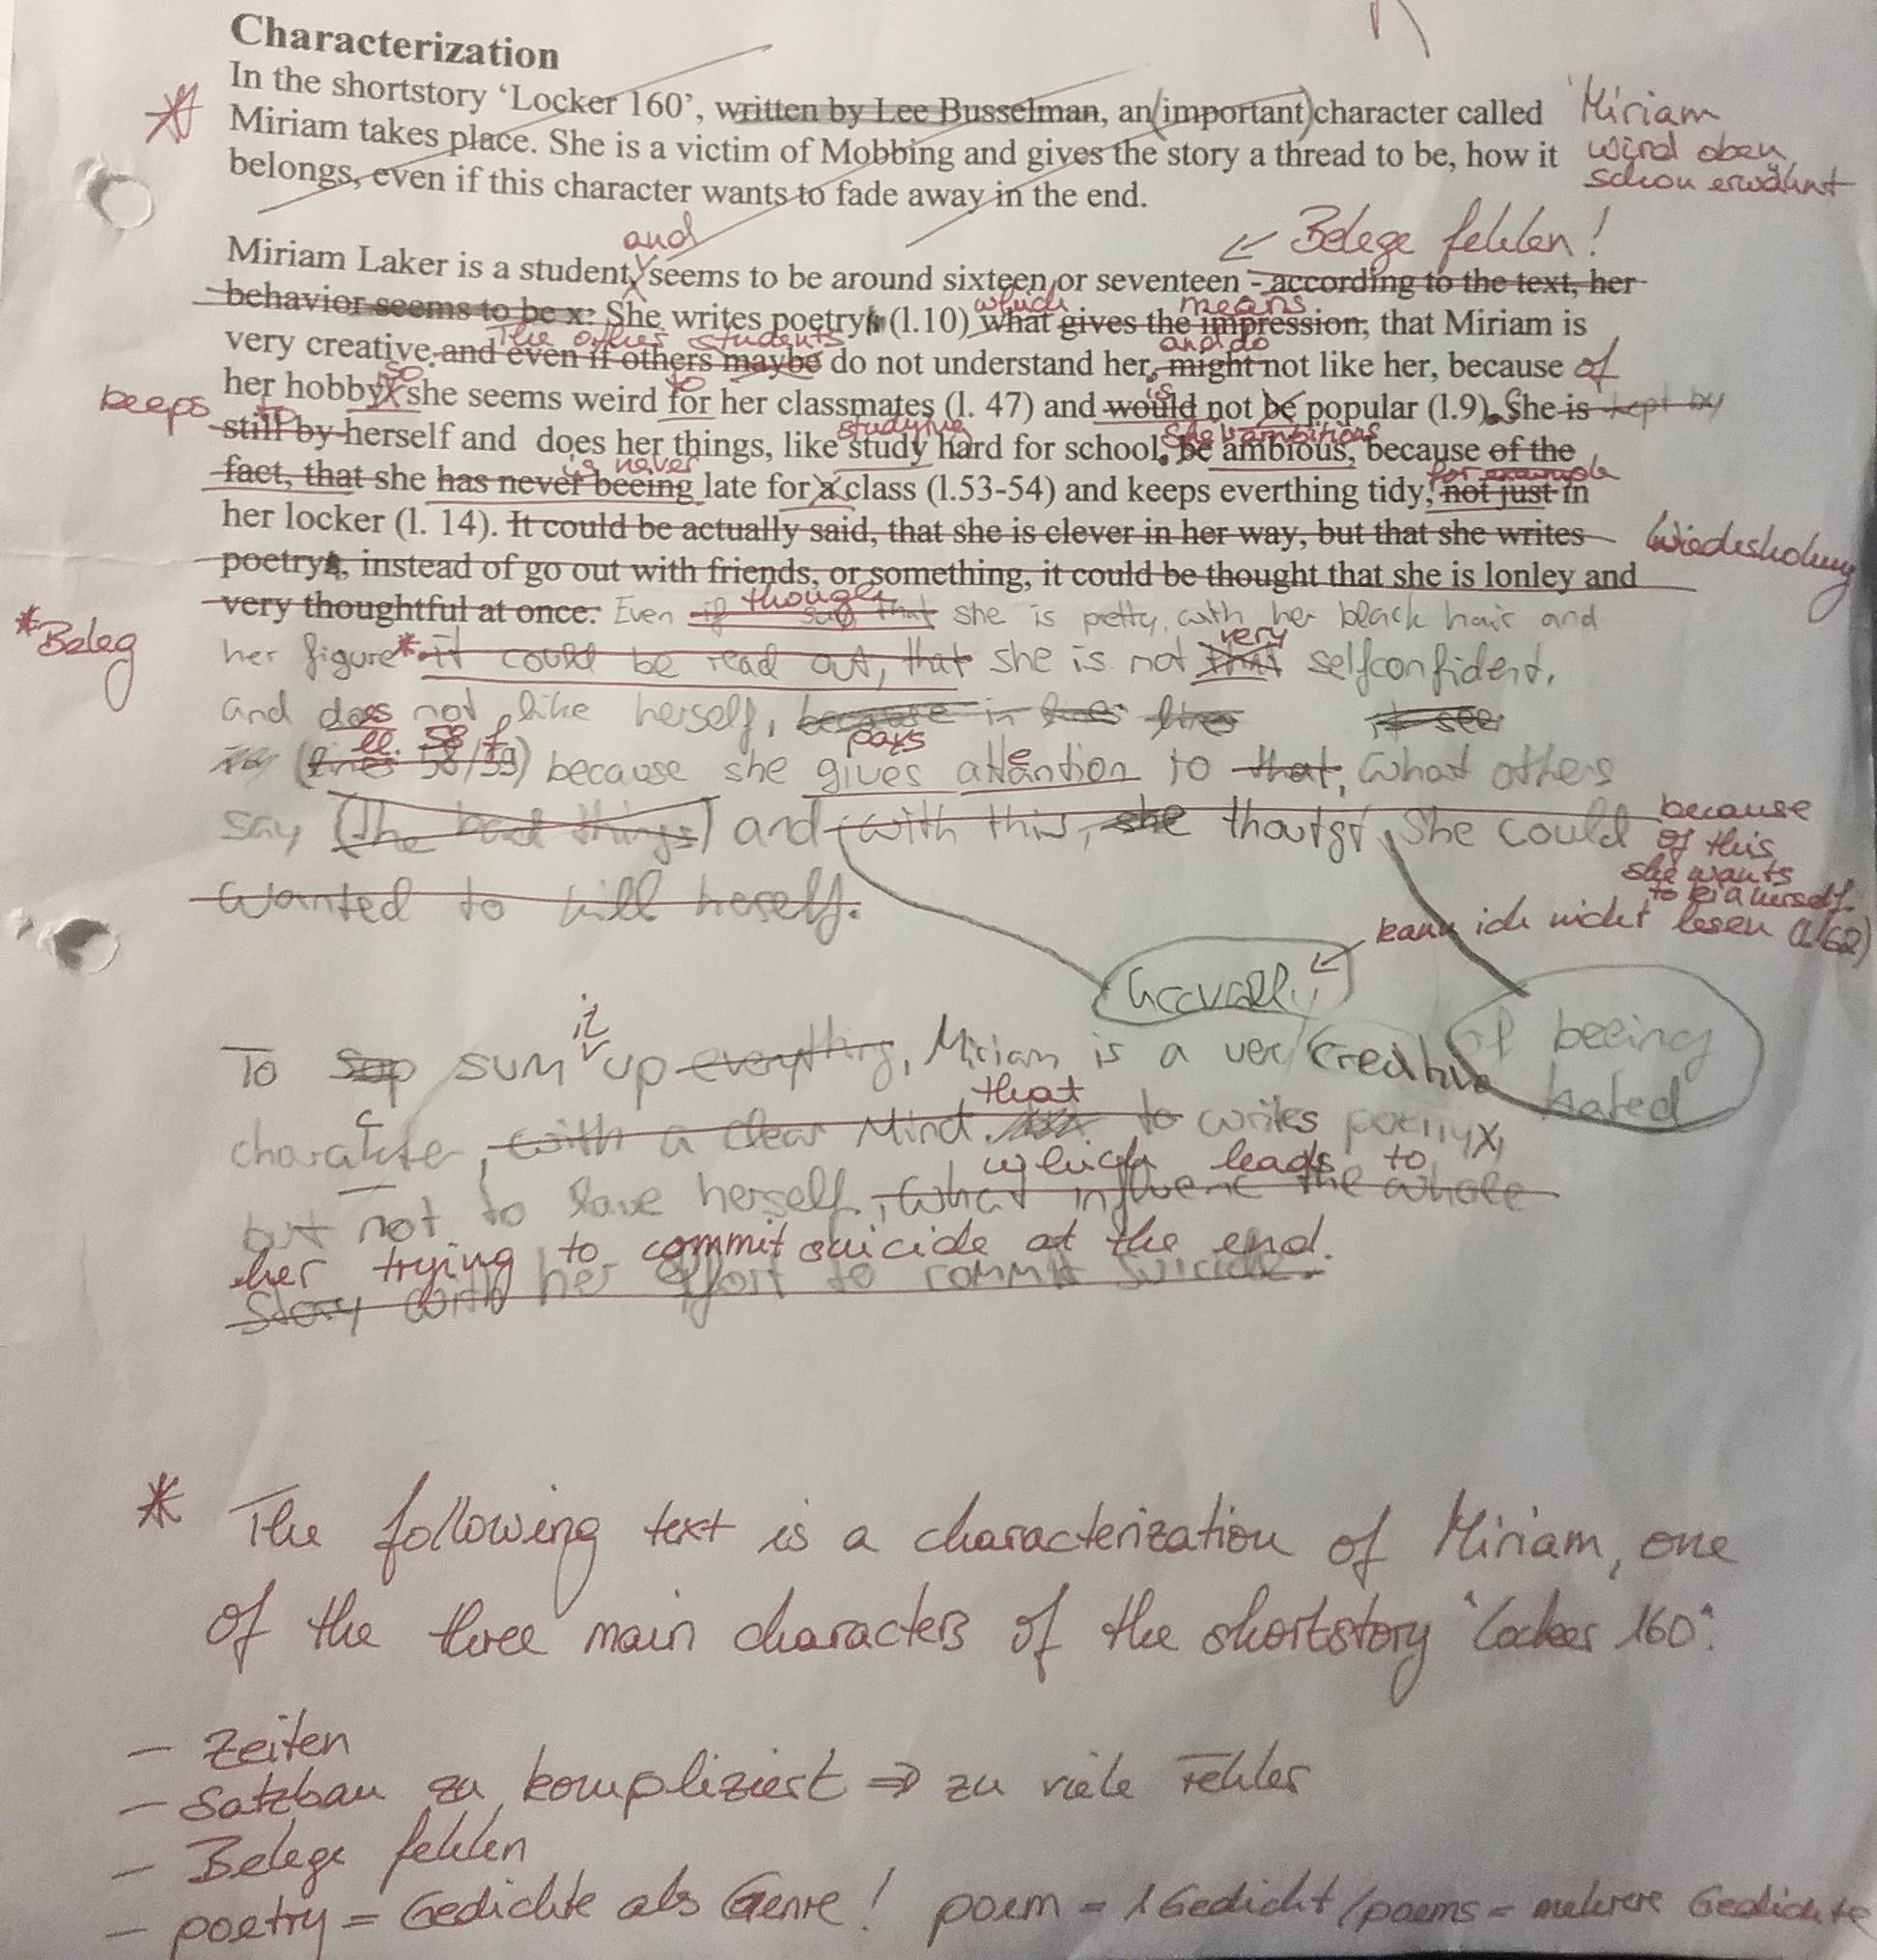 Characterization
In the shortstory ‘Locker 160’, written by Lee Busselman, an (important) character called
Miriam takes place. She is a victim of Mobbing and gives the story a thread to be, how it
belongs, even if this character wants to fade away in the end.
Miriam
wird oben
schon erwähnt
and
Belege fehlen!
Miriam Laker is a student, seems to be around sixteen or seventeen - according to the text, her
behavior seems to be x: She writes poetry (l.10) what gives the impression, that Miriam is
which means
The other students
very creative and even if others maybe do not understand her, might not like her, because of
and do
her hobby she seems weird for her classmates (l. 47) and would not be popular (l.9). She is kept by
so to is
keeps to
still by herself and does her things, like study hard for school, be ambious, because of the
studying She is ambitious
fact, that she has never beeing late for a class (l.53-54) and keeps everthing tidy, not just in
is never for example
her locker (l. 14). It could be actually said, that she is clever in her way, but that she writes
Wiederholung
poetry, instead of go out with friends, or something, it could be thought that she is lonley and
very thoughtful at once. Even if said that she is pretty, with her black hair and
though
* Beleg
her figure* it could be read out, that she is not that selfconfident,
very
and does not like herself, because in lines lines it see
ll. 58 f pays e
(lines 58/59) because she gives attantion to that, what others
say (the bad things) and with this, she thougt, She could
because
of this
she wants
to kill herself.
wanted to kill herself.
kann ich nicht lesen (l. 62)
of beeing
hated
it
To sup sum up everything, Miriam is a ver creative
that
charakter, with a clear Mind to writes poetry,
c
which leads to
but not to love herself, what influenc the whole
her trying to commit suicide at the end.
Story with her effort to commit suicide.
* The following text is a characterization of Miriam, one
of the three main characters of the shortstory "Locker 160".
- Zeiten
- Satzbau zu kompliziert ⇒ zu viele Fehler
- Belege fehlen
- poetry = Gedichte als Genre! poem = 1 Gedicht / poems = mehrere Gedichte